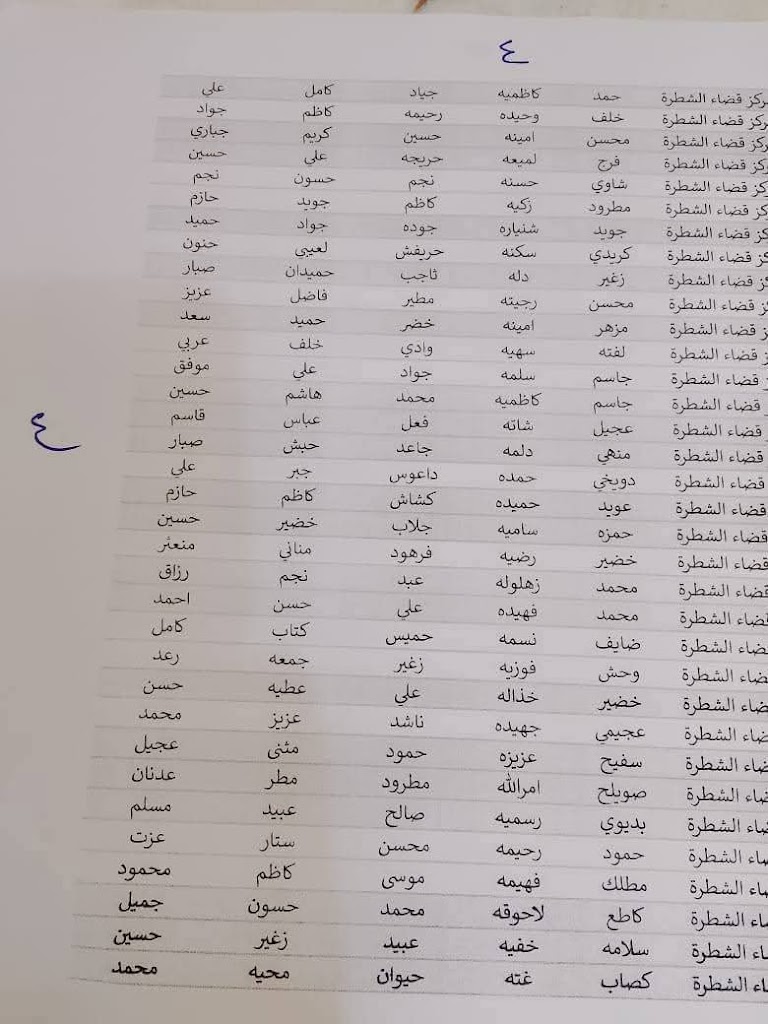 ٤
ركز قضاء الشطرة حمد كاظميه جياد كامل علي
ركز قضاء الشطرة خلف وحيده رحيمه كاظم جواد
ركز قضاء الشطرة محسن امينه حسين كريم جباري
ركز قضاء الشطرة فرج لميعه خريجه علي حسين
ركز قضاء الشطرة شاوي حسنه نجم حسون نجم
كز قضاء الشطرة مطرود زكيه كاظم جويد حازم
كز قضاء الشطرة جويد شنياره جوده جواد حميد
كز قضاء الشطرة كريدي سكنه حريفش لعيبي حنون
كز قضاء الشطرة زغير دله ثاجب حميدان صبار
ز قضاء الشطرة محسن رجيته مطير فاضل عزيز
ز قضاء الشطرة مزهر امينه خضر حميد سعد
ز قضاء الشطرة لفته سهيه وادي خلف عربي
ز قضاء الشطرة جاسم سلمه جواد علي موفق
قضاء الشطرة جاسم كاظميه محمد هاشم حسين
قضاء الشطرة عجيل شاته فعل عباس قاسم
قضاء الشطرة منهي دلمه جاعد حبش صبار
قضاء الشطرة دويخي حمده داعوس جبر علي
قضاء الشطرة عويد حميده كشاش كاظم حازم
قضاء الشطرة حمزه ساميه جلاب خضير حسين
قضاء الشطرة خضير رضيه فرهود مناني منعثر
قضاء الشطرة محمد زهلوله عبد نجم رزاق
قضاء الشطرة محمد فهيده علي حسن احمد
ضاء الشطرة ضايف نسمه خميس كتاب كامل
ضاء الشطرة وحش فوزيه زغير جمعه رعد
ضاء الشطرة خضير خذاله علي عطيه حسن
ضاء الشطرة عجيمي جهيده ناشد عزيز محمد
ضاء الشطرة سفيح عزيزه حمود مثنى عجيل
ضاء الشطرة صويلح امرالله مطرود مطر عدنان
ضاء الشطرة بديوي رسميه صالح عبيد مسلم
ضاء الشطرة حمود رحيمه محسن ستار عزت
اء الشطرة مطلك فهيمه موسى كاظم محمود
اء الشطرة كاطع لاحوقه محمد حسون جميل
اء الشطرة سلامه خفيه عبيد زغير حسين
اء الشطرة كصاب غته حيوان محيه محمد
٤